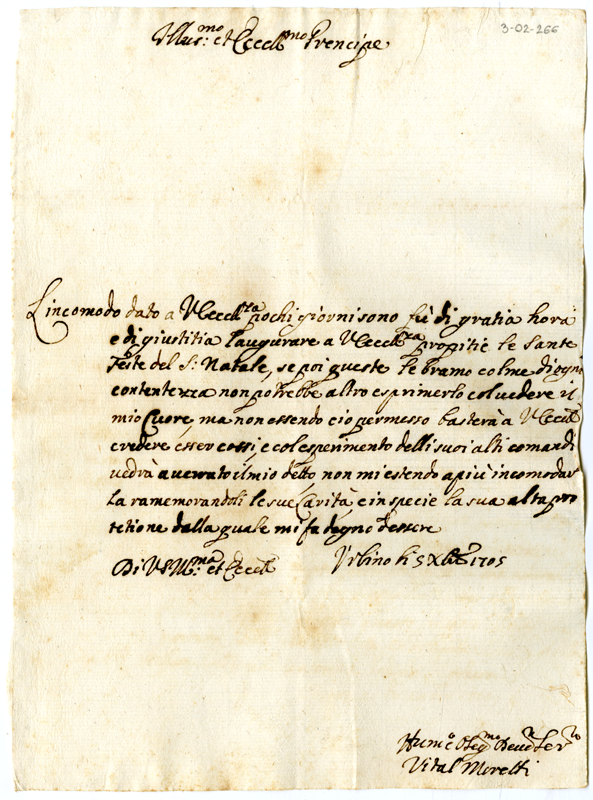 3-02-266
Illus:mo et Eccell:mo Prencipe
L'incomodo dato a V Eccell:za pochi giorni sono fù di gratia hora
e di giustitia l'augurare a V Eccell:za propitie le sante
feste del S: Natale, se poi queste le bramo colme di ogni
contentezza non potrebbe altro esprimerlo col vedere il
mio Cuore, ma non essendo ciò permesso basterà à V Eccell:
credere esser cossi, e col esperimento delli suoi alti comandi
vedrà averrato il mio detto non mi estendo a più incomodar
la ramemorandoli le sue Carità e in specie la sua alta pro
tetione dalla quale mi fa degno d'essere
Di VS Ill:ma et Eccell: Urbino li 5 Xbre 1705
Hum:o Oseq:mo Deuo: Ser:
Vital Moretti